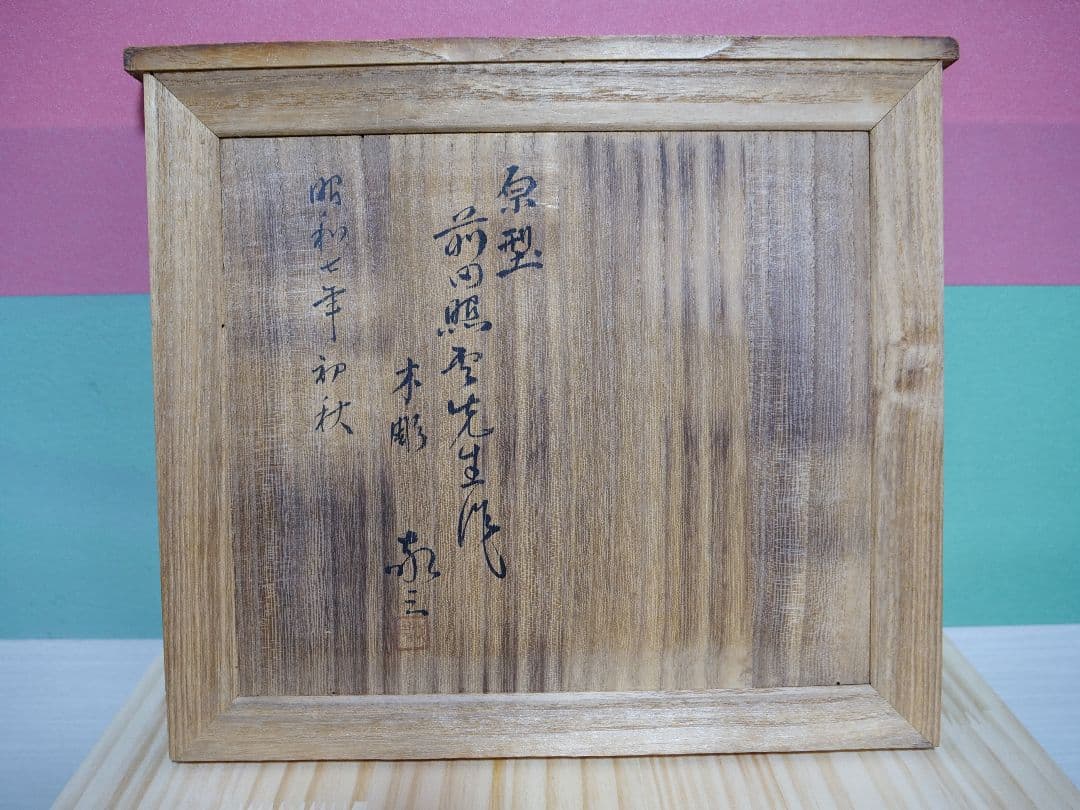 原型
前田照雲先生作
木彫 敬三
昭和七年初秋